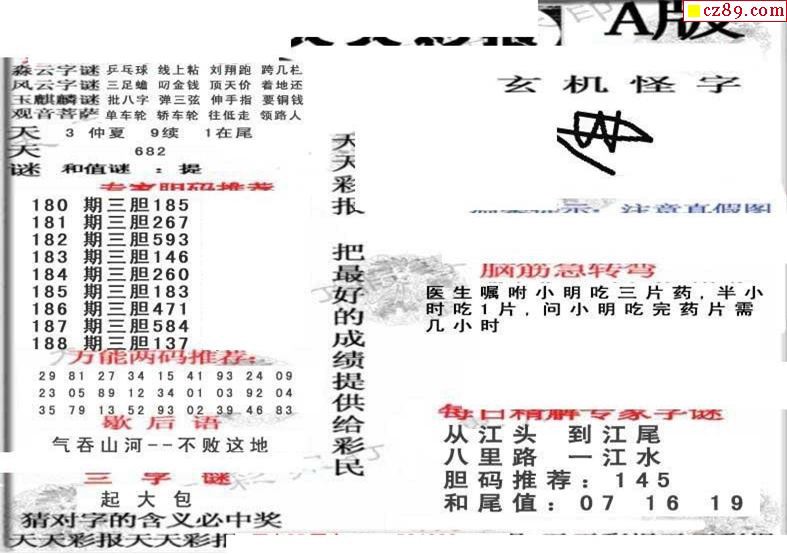 cz89.com
天天彩报 A版
森云字谜 乒乓球 线上粘 刘翔跑 跨几栏
风云字谜 三足蟾 叼金钱 顶天价 着地还
玉麒麟谜 批八字 弹三弦 伸手指 要铜钱
观音菩萨 单车轮 轿车轮 往低走 领路人
天 3 仲夏 9续 1在尾
天 682
谜 和值谜 : 提
专家胆码推荐
180 期三胆185
181 期三胆267
182 期三胆593
183 期三胆146
184 期三胆260
185 期三胆183
186 期三胆471
187 期三胆584
188 期三胆137
万能两码推荐:
29 81 27 34 15 41 93 24 09
23 05 89 12 34 01 03 92 04
35 79 13 52 93 02 39 46 83
歇后语
气吞山河--不败这地
三字谜
起大包
猜对字的含义必中奖
天天彩报天天彩报
天天彩报 把最好的成绩提供给彩民
玄机怪字
注意真假图
脑筋急转弯
医生嘱咐小明吃三片药,半小
时吃1片,问小明吃完药片需
几小时
每日精解专家字谜
从江头 到江尾
八里路 一江水
胆码推荐: 145
和尾值: 07 16 19